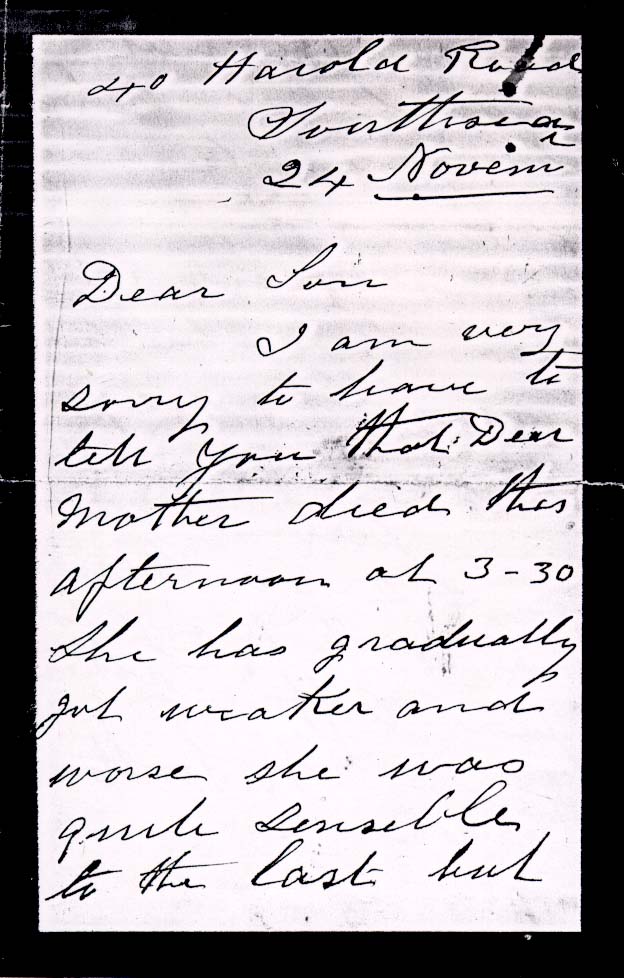 40 Harold Road
Southsea
24 Novem
Dear Son
I am very
sorry to have to
tell you that Dear
Mother died this
afternoon at 3-30
She has gradually
got weaker and
worse she was
quite sensible
to the last but